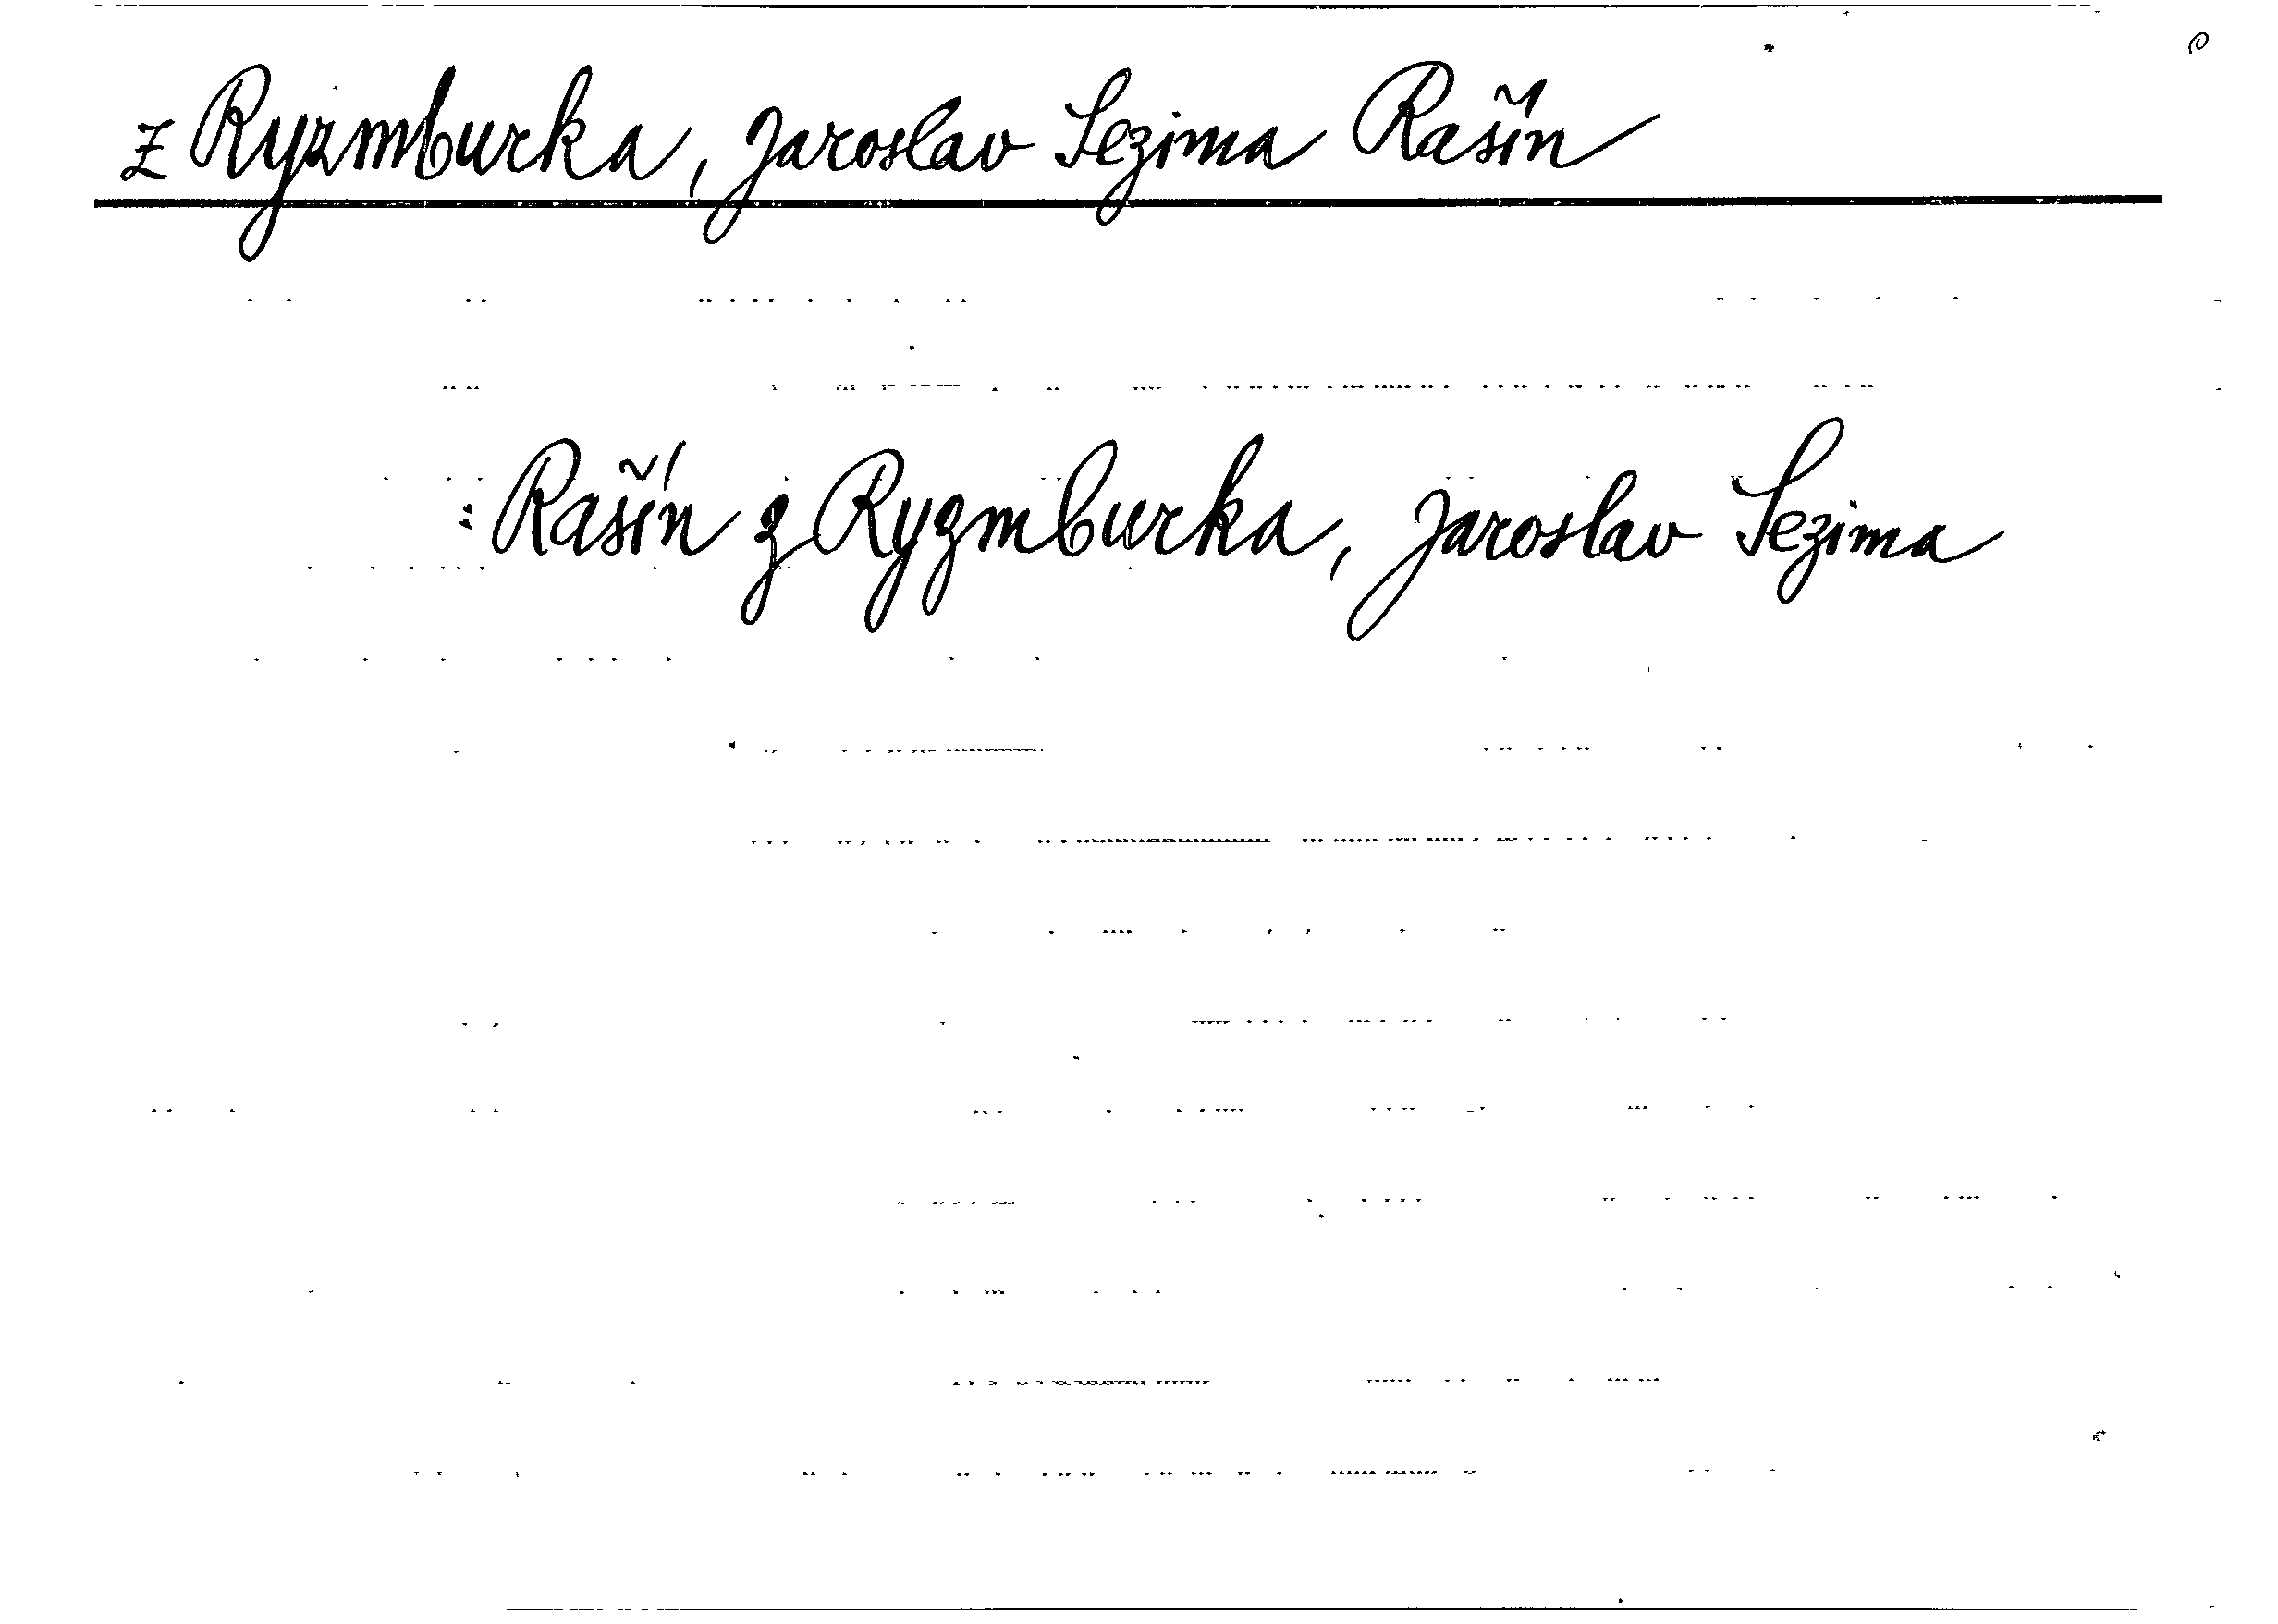 z Ryzmburka, Jaroslav Sezima Rašín
: Rašín z Ryzmburka, Jaroslav Sezima